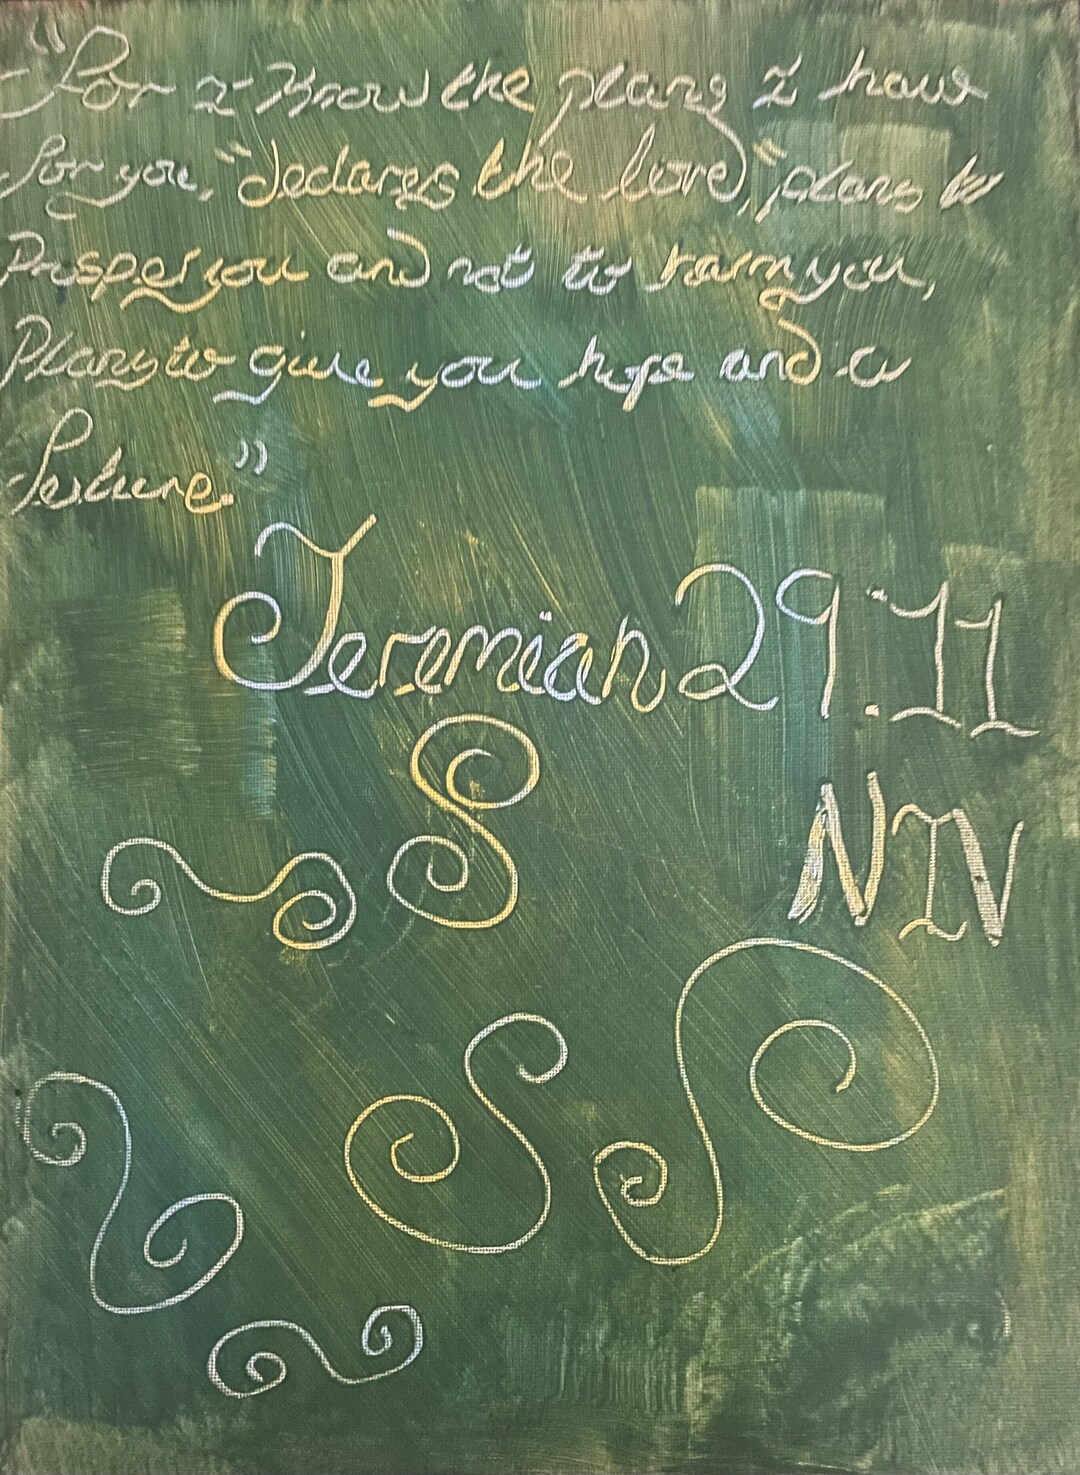 "For I know the plans I have
for you," declares the lord, "plans to
Prosper you and not to harm you,
Plans to give you hope and a
future."
Jeremiah 29:11
NIV